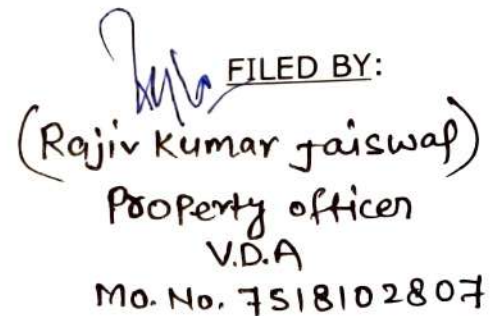 FILED BY:
(Rajiv Kumar Jaiswal)
Property officer
V.D.A
Mo. No. 7518102807